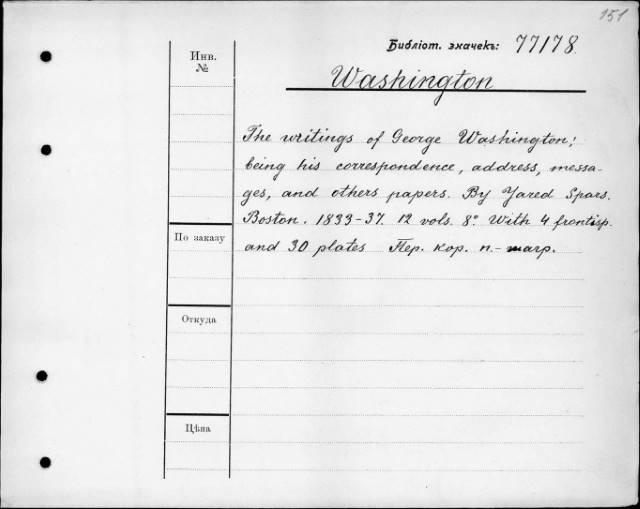 151
Библіот. значекъ: 77178
Инв.
№
Washington
The writings of George Washington;
being his correspondence, address, messa-
ges, and others papers. By Jared Spars.
Boston. 1833-37. 12 vols. 8°. With 4 frontisp.
and 30 plates Пер. кор. п.-шагр.
По заказу
Откуда
Цѣна